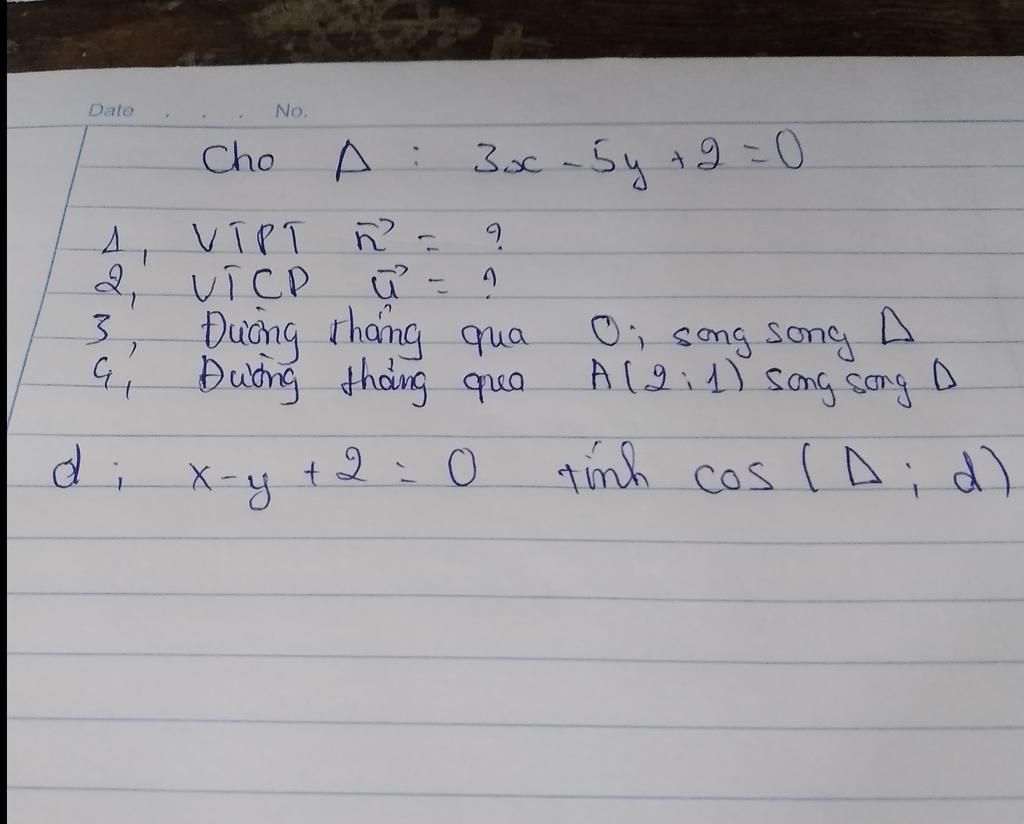 Date . . . No.
Cho Δ : 3x - 5y + 2 = 0
1, VTPT n⃗ = ?
2, VTCP u⃗ = ?
3, Đường thẳng qua O; song song Δ
4, Đường thẳng qua A(2;1) song song Δ
d; x-y + 2 = 0 tính cos (Δ; d)